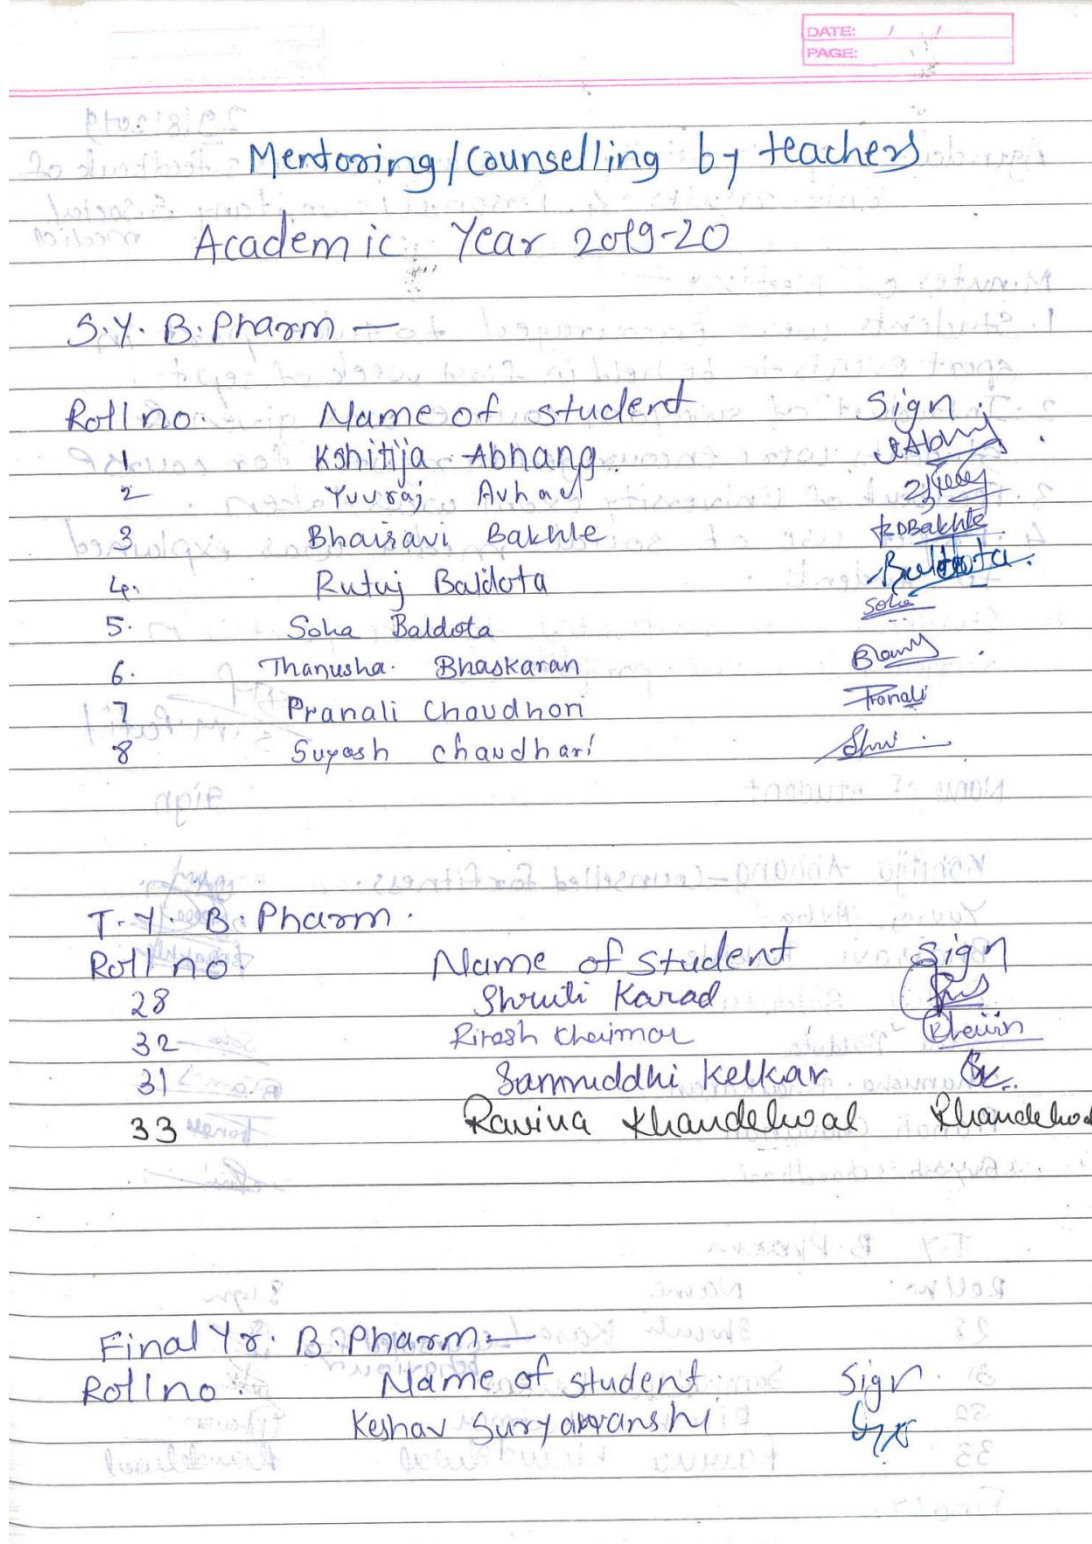 DATE: / /
PAGE:
Mentoring/Counselling by teachers
Academic Year 2019-20
S.Y. B.Pharm —
Roll no. Name of student Sign
1 Kshitija Abhang
2 Yuvraj Avhad
3 Bhairavi Bakhle RDBakhle
4. Rutuj Baldota Baldota
5. Soha Baldota Soha
6. Thanusha. Bhaskaran
7 Pranali Choudhari Pranali
8 Suyash chaudhari
T.Y. B.Pharm.
Roll no. Name of student sign
28 Shruti Karad
32 Ritesh Khairnar
31 Samruddhi Kelkar
33 Ravina Khandelwal Khandelwal
Final Yr. B.Pharm —
Roll no. Name of student Sign
Keshav Suryawanshi